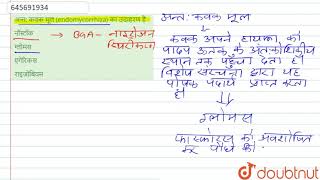 645691934
अन्तः कवक मूल (endomycorrhiza) का उदाहरण है
नॉस्टॉक → BGA - नाइट्रोजन स्थिरीकरण
ग्लोमस
एगेरिकस
राइजोबियम
अन्तः कवक मूल
↓
कवक अपने हायफा को
पादप ऊतक के अंतःकोशिकीय
स्थान तक पहुंचा देता है।
विशेष संरचना द्वारा यह
पोषक पदार्थ प्राप्त करता
है।
⇓
ग्लोमस
फास्फोरस को अवशोषित
कर पौधे को
doubtnut